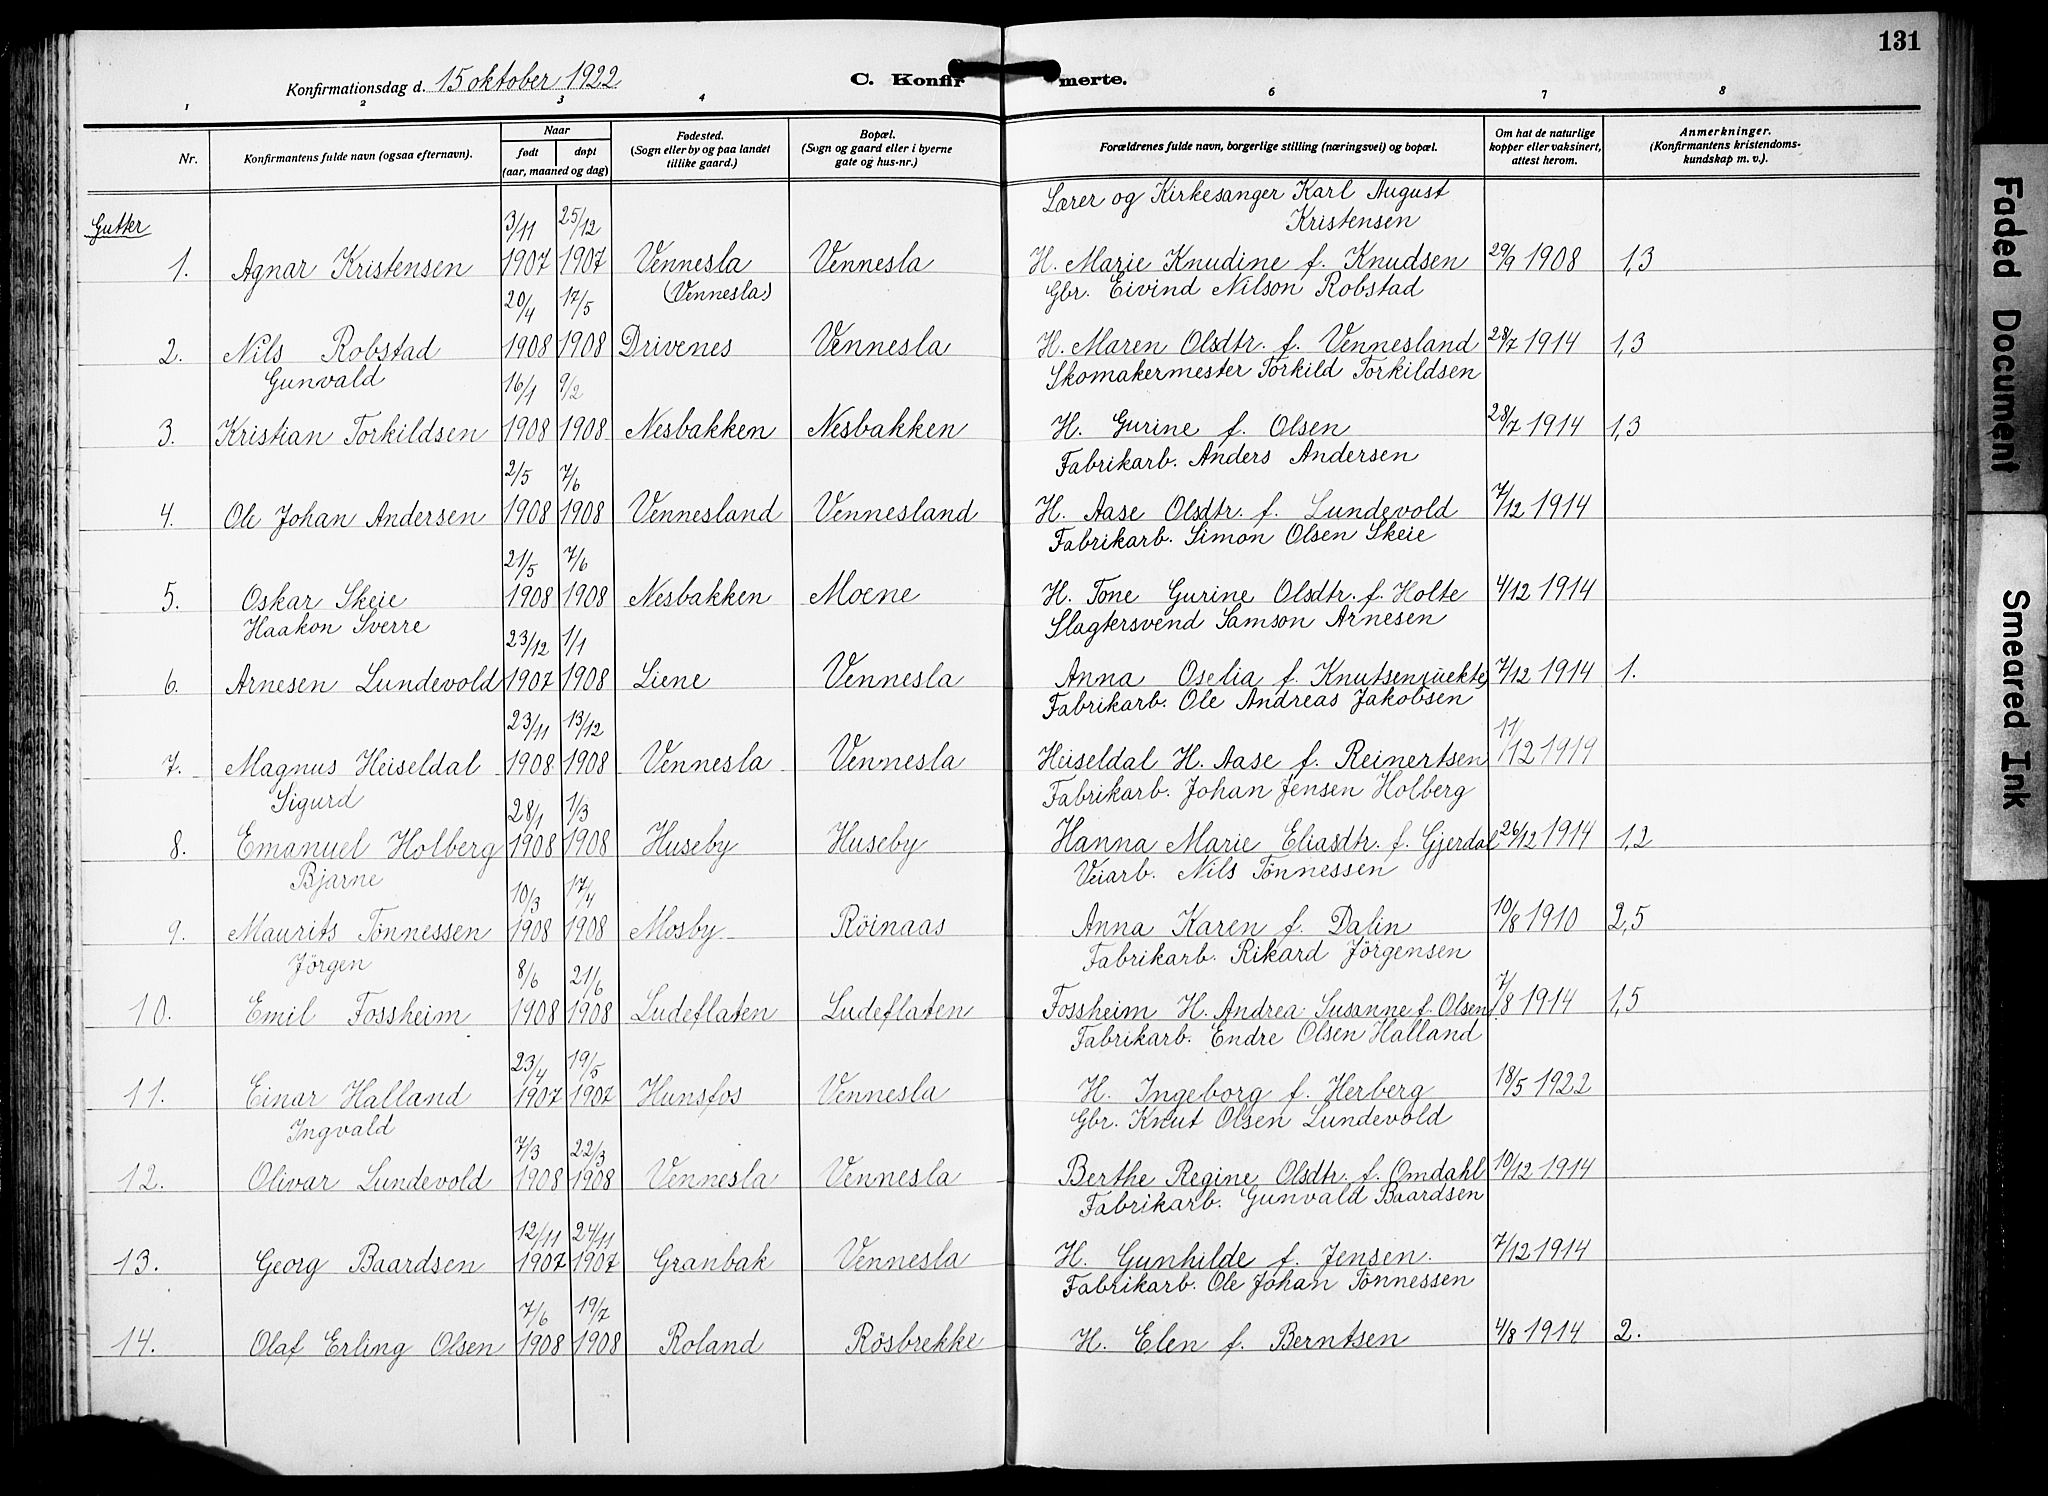 131
Konfirmationsdag d. 15 oktober 1922.
C. Konfirmerte.
1 2 3 4 6 7 8
Nr.
Konfirmantens fulde navn (ogsaa efternavn).
Naar
født døpt
(aar, maaned og dag)
Fødested.
(Sogn eller by og paa landet
tillike gaard.)
Bopæl.
(Sogn og gaard eller i byerne
gate og hus-nr.)
Forældrenes fulde navn, borgerlige stilling (næringsvei) og bopæl.
Om hat de naturlige
kopper eller vaksinert,
attest herom.
Anmerkninger.
(Konfirmantens kristendoms-
kundskap m. v.).
Gutter
3/11 25/12 Lærer og Kirkesanger Karl August
Kristensen
1. Agnar Kristensen 1907 1907 Vennesla Vennesla H. Marie Knudine f. Knudsen 29/9 1908 1,3
20/4 17/5 (Vennesla) Gbr. Eivind Nilson Robstad
2. Nils Robstad 1908 1908 Drivenes Vennesla H. Maren Olsdtr. f. Vennesland 28/7 1914 1,3
Gunvald 16/1 9/2 Skomakermester Torkild Torkildsen
3. Kristian Torkildsen 1908 1908 Nesbakken Nesbakken H. Gurine f. Olsen 28/7 1914 1,3
2/5 7/6 Fabrikarb. Anders Andersen
4. Ole Johan Andersen 1908 1908 Vennesland Vennesland H. Aase Olsdtr. f. Lundevold 7/12 1914
21/5 7/6 Fabrikarb. Simon Olsen Skeie
5. Oskar Skeie 1908 1908 Nesbakken Moene H. Tone Gurine Olsdtr. f. Holte 4/12 1914
Haakon Sverre 23/12 1/1 Slagtersvend Samson Arnesen
6. Arnesen Lundevold 1907 1908 Liene Vennesla Anna Oselia f. Knutsen 7/12 1914 1.
23/11 13/12 Fabrikarb. Ole Andreas Jakobsen
7. Magnus Heiseldal 1908 1908 Vennesla Vennesla Heiseldal H. Aase f. Reinertsen 11/12 1914
Sigurd 28/1 1/3 Fabrikarb. Johan Jensen Holberg
8. Emanuel Holberg 1908 1908 Huseby Huseby Hanna Marie Eliasdtr. f. Gjerdal 26/12 1914 1,2
Bjarne 10/3 17/4 Veiarb. Nils Tönnessen
9. Maurits Tönnessen 1908 1908 Mosby Röinaas Anna Karen f. Dalin 10/8 1910 2,5
Jörgen 8/6 21/6 Fabrikarb. Rikard Jörgensen
10. Emil Fossheim 1908 1908 Ludeflaten Ludeflaten Fossheim H. Andrea Susanne f. Olsen 7/8 1914 1,5
23/4 19/5 Fabrikarb. Endre Olsen Halland
11. Einar Halland 1907 1907 Hunsfos Vennesla H. Ingeborg f. Herberg 18/5 1922
Ingvald 7/3 22/3 Gbr. Knut Olsen Lundevold
12. Olivar Lundevold 1908 1908 Vennesla Vennesla Berthe Regine Olsdtr. f. Omdahl 10/12 1914
12/11 24/11 Fabrikarb. Gunvald Baardsen
13. Georg Baardsen 1907 1907 Granbak Vennesla H. Gunhilde f. Jensen. 7/12 1914
7/6 19/7 Fabrikarb. Ole Johan Tönnessen
14. Olaf Erling Olsen 1908 1908 Roland Rösbrekke H. Elen f. Berntsen 4/8 1914 2.
Faded Document
Smeared Ink